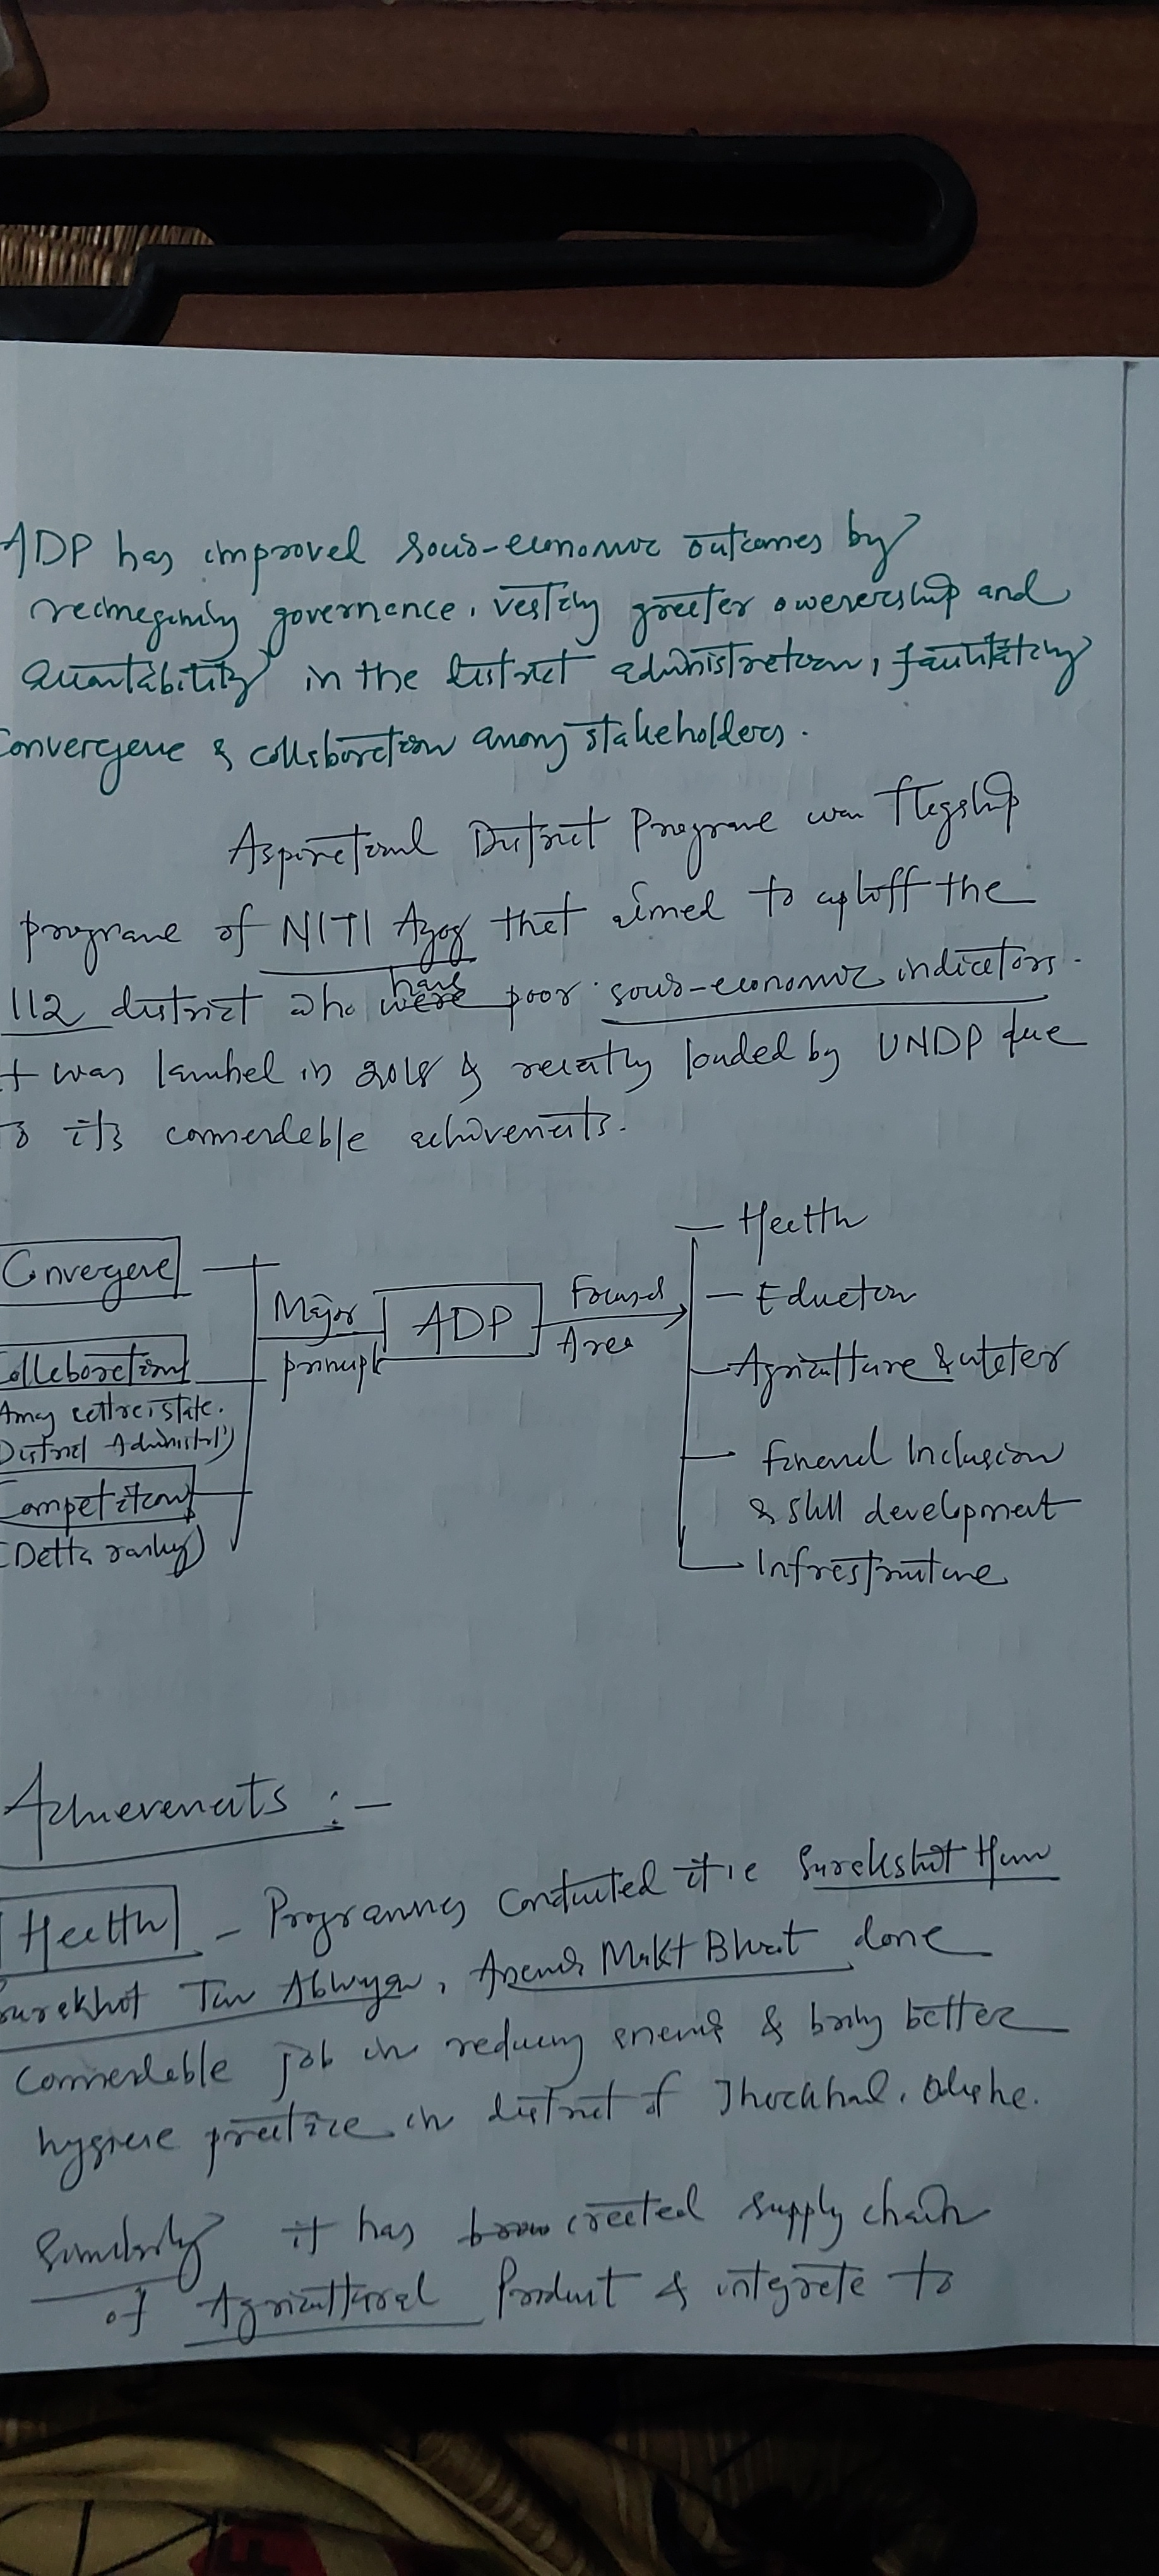 ADP has improved socio-economic outcomes by
governance, vesting greater owerership and
accountability in the district administration, facilitating
Convergence & collaboration among stakeholders.
Aspirational District Programe was flagship
programe of NITI Ayog that aimed to the
112 district who have poor socio-economic indicators.
t was launched in 2018 & recently lauded by UNDP due
o its commendable achivements.
Convergence
Collaboration
Among centre, state,
District Administratn
Competition
(Delta ranking)
Major
principle
ADP
Focused
Area
— Health
— Education
— Agriculture & water
— Financial Inclusion
& skill development
— Infrastructure
Achievements :-
Health - Programmes conducted Surakshit Hum
Surakshit Tum Abhiyan, Anemia Mukt Bharat done
commendable job in reducing anemia & bring better
hygiene practice in district of Odisha.
Similarly it has created supply chain
of Agricultural Product & integrate to